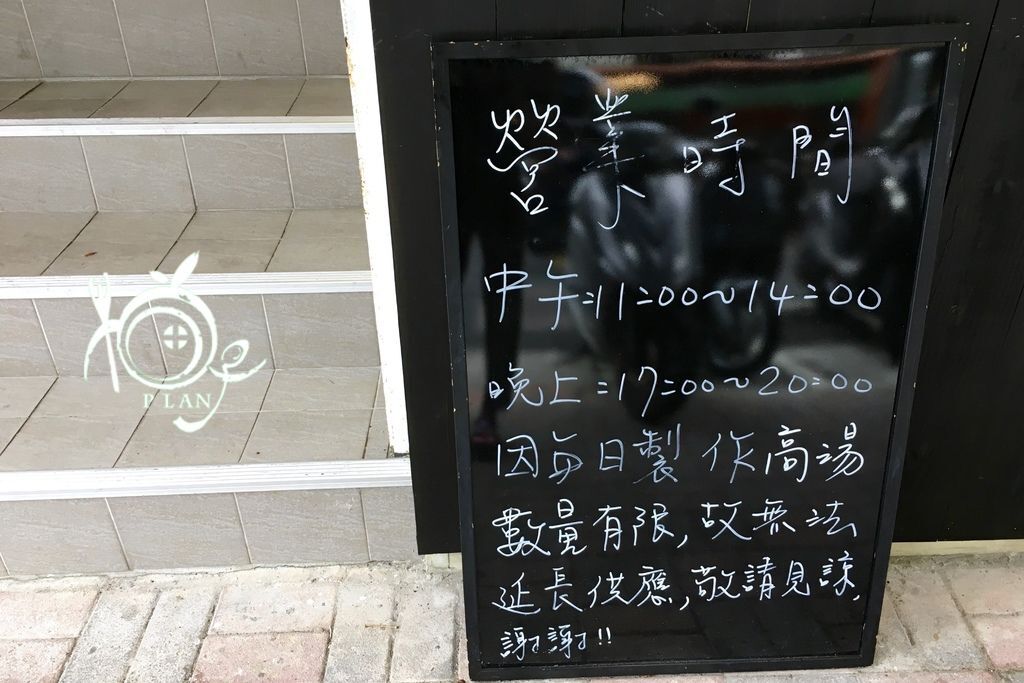 營業時間
中午:11:00~14:00
晚上:17:00~20:00
因每日製作高湯
數量有限,故無法
延長供應,敬請見諒,
謝謝!!
PLAN